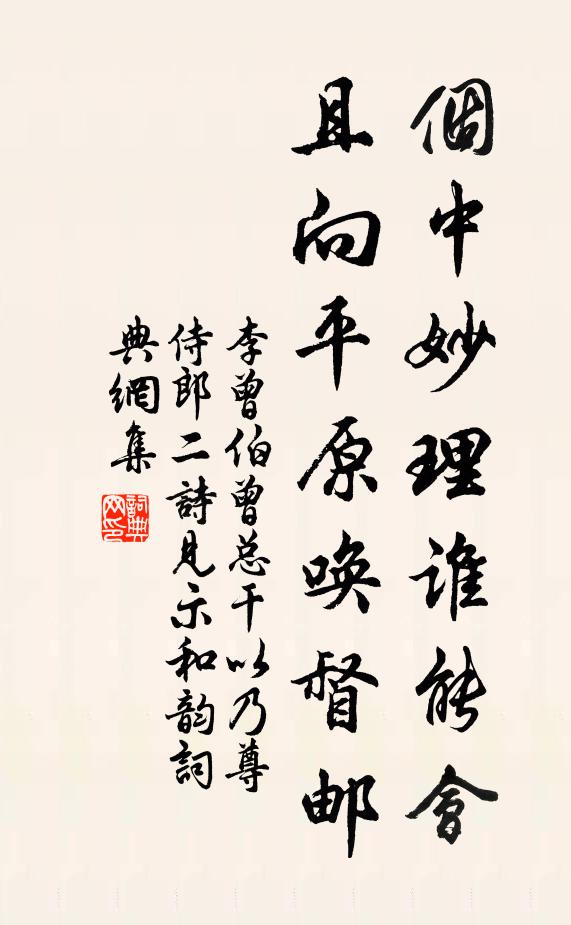 個中妙理誰能會
且向平原唤督邮
李曾伯曾总干以乃尊
侍郎二詩見示和韵詞
典網集
詞典網印